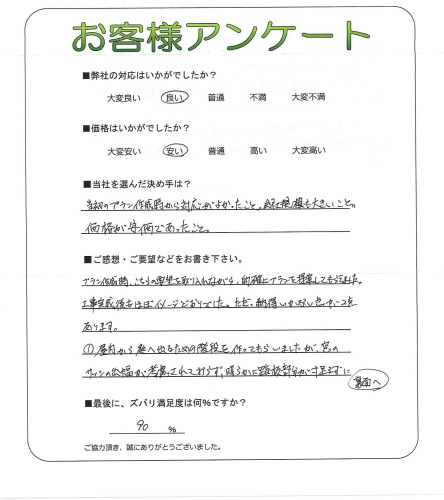 お客様アンケート
■弊社の対応はいかがでしたか?
大変良い 良い 普通 不満 大変不満
■価格はいかがでしたか?
大変安い 安い 普通 高い 大変高い
■当社を選んだ決め手は?
当初のプラン作成時から対応がよかったこと。会社規模も大きいこと。
価格が安価であったこと。
■ご感想・ご要望などをお書き下さい。
プラン作成時、こちらの要望を取り入れながら、的確にプランを提案してもらえました。
工事完成後もほぼイメージどおりでした。ただ、納得しかねる点が2点
あります。
①屋内から庭へ出るための階段を作ってもらいましたが、窓の
サッシの出幅が考慮されておらず、明らかに踏板部分が寸足らずに
裏面へ
■最後に、ズバリ満足度は何%ですか?
90 %
ご協力頂き、誠にありがとうございました。